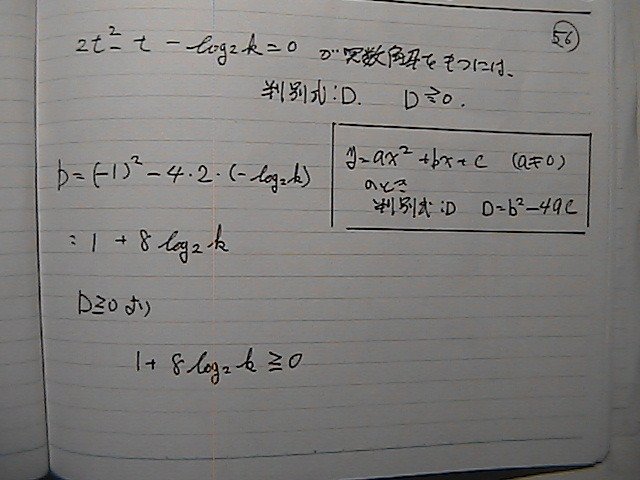 56
2t²-t-log₂k=0 が実数解をもつには、
判別式:D. D≧0.
D=(-1)²-4・2・(-log₂k)
y=ax²+bx+c (a≠0)
のとき
判別式:D D=b²-4ac
=1+8log₂k
D≧0より
1+8log₂k≧0